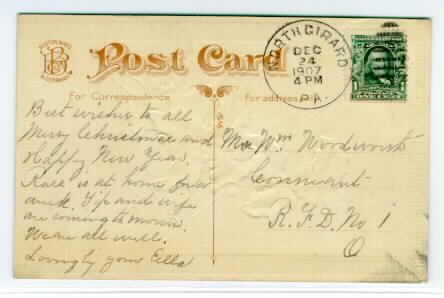 Post Card
For Correspondence
For address
NORTH GIRARD
DEC
24
1907
4 PM
PA.
Best wishes to all
Merry Christmas and
Happy New Year.
is at home for a
week. and wife
are coming to morrow.
We are all well.
Lovingly your Ella
Mrs Wm Woodworth
Conneaut
R.F.D. No 1
O